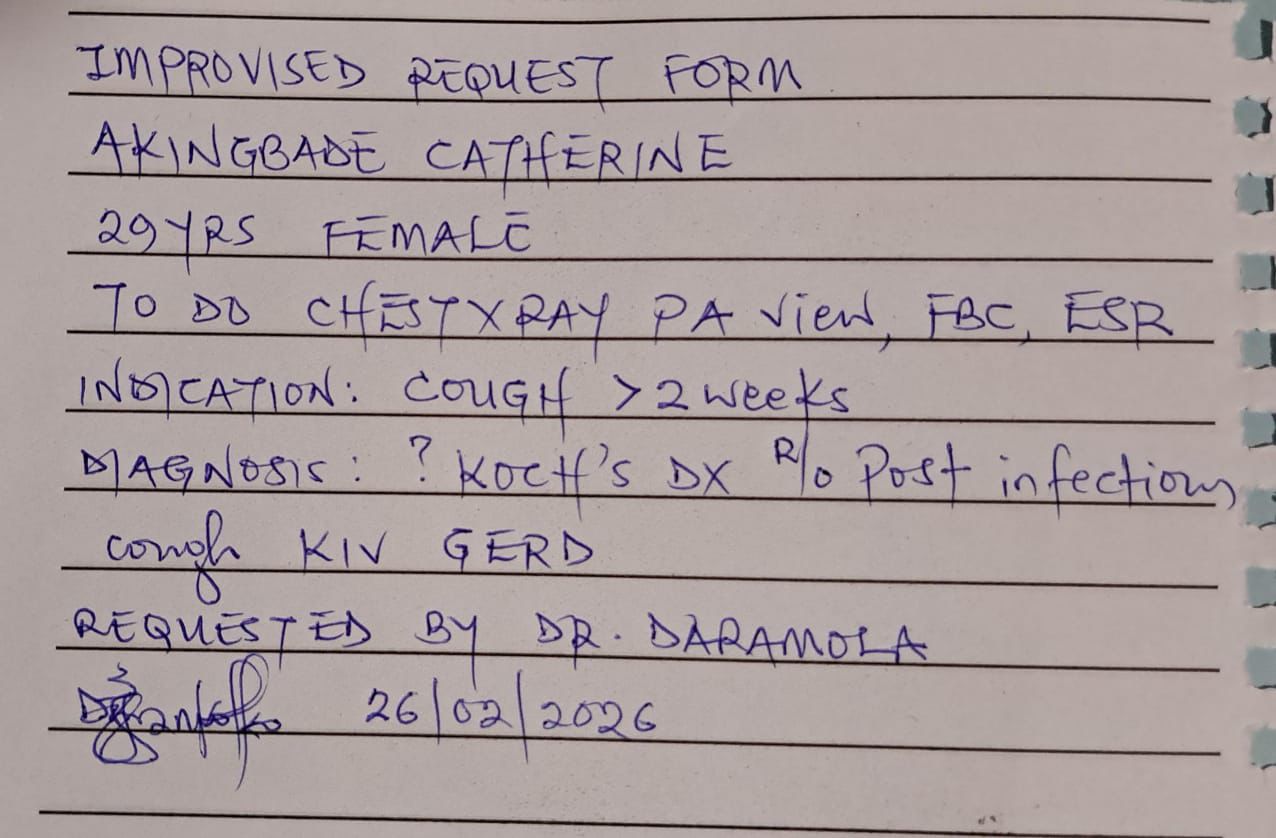 IMPROVISED REQUEST FORM
AKINGBADE CATHERINE
29YRS FEMALE
TO DO CHEST XRAY PA View, FBC, ESR
INDICATION: COUGH >2 weeks
DIAGNOSIS: ? KOCH'S DX R/o Post infectious
cough KIV GERD
REQUESTED BY DR. DARAMOLA
26/02/2026